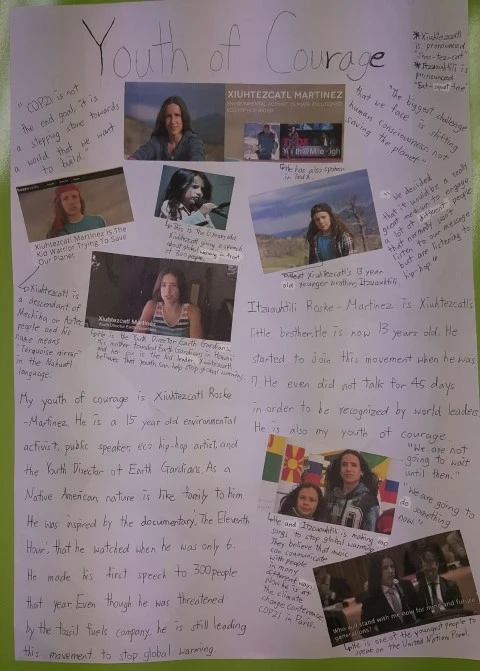 Youth of Courage
* Xiuhtezcatl
is pronounced
* Itzcuauhtli is
pronounced
"COP21 is not
the end goal, it is
a stepping stone towards
a world that we want
to build."
XIUHTEZCATL MARTINEZ
ENVIRONMENTAL ACTIVIST, CLIMATE SOLUTIONIST
ECO HIP-HOP ARTIST
↳He has also spoken
in TedX.
"The biggest challenge
that we face is shifting
human consciousness, not
saving the planet."
Xiuhtezcatl Martinez Is the
Kid Warrior Trying To Save
Our Planet
↳This is the 6 years old
Xiuhtezcatl giving a speech
about global warming in front
of 300 people.
"We decided
that it would be a really
great medium to engage
a lot of different people
that normally won't
listen to our message
but are listening to
hip-hop."
↳Meet Xiuhtezcatl's 13 year
old younger brother, Itzcuauhtli.
↳Xiuhtezcatl is
a descendant of
Meshika or Aztec
people and his
name means
"Turquoise mirror"
in the Nahuatl
language.
Xiuhtezcatl Martinez
Youth Director Earth Guardians
↳He is the Youth Director Earth Gardians.
His mother founded Earth Gardians in Hawaii
and her son is the kid leader. Xiuhtezcatl
believes that youth can help stop global warming.
My youth of courage is Xiuhtezcatl Roske
-Martinez. He is a 15 year old environmental
activist, public speaker, eco hip-hop artist, and
the Youth Director of Earth Gardians. As a
Native American nature is like family to him.
He was inspired by the documentary, 'The Eleventh
Hour', that he watched when he was only 6.
He made his first speech to 300 people
that year. Even though he was threatened
by the fossil fuels company, he is still leading
this movement to stop global warming.
Itzcuauhtli Roske-Martinez is Xiuhtezcatl's
little brother. He is now 13 years old. He
started to join this movement when he was
7. He even did not talk for 45 days
in order to be recognized by world leaders.
He is also my youth of courage.
"We are not
going to wait
until then."
"We are going to
do something
now."
↳He and Itzcuauhtli is making rap
songs to stop global warming.
They believe that music
can communicate
with people
in many
different ways.
Now he is at
the climate
change conference,
COP21 in Paris.
Who will stand with me now for mine and future
generations?
↳He is one of the youngest people to
speak on the United Nation Panel.